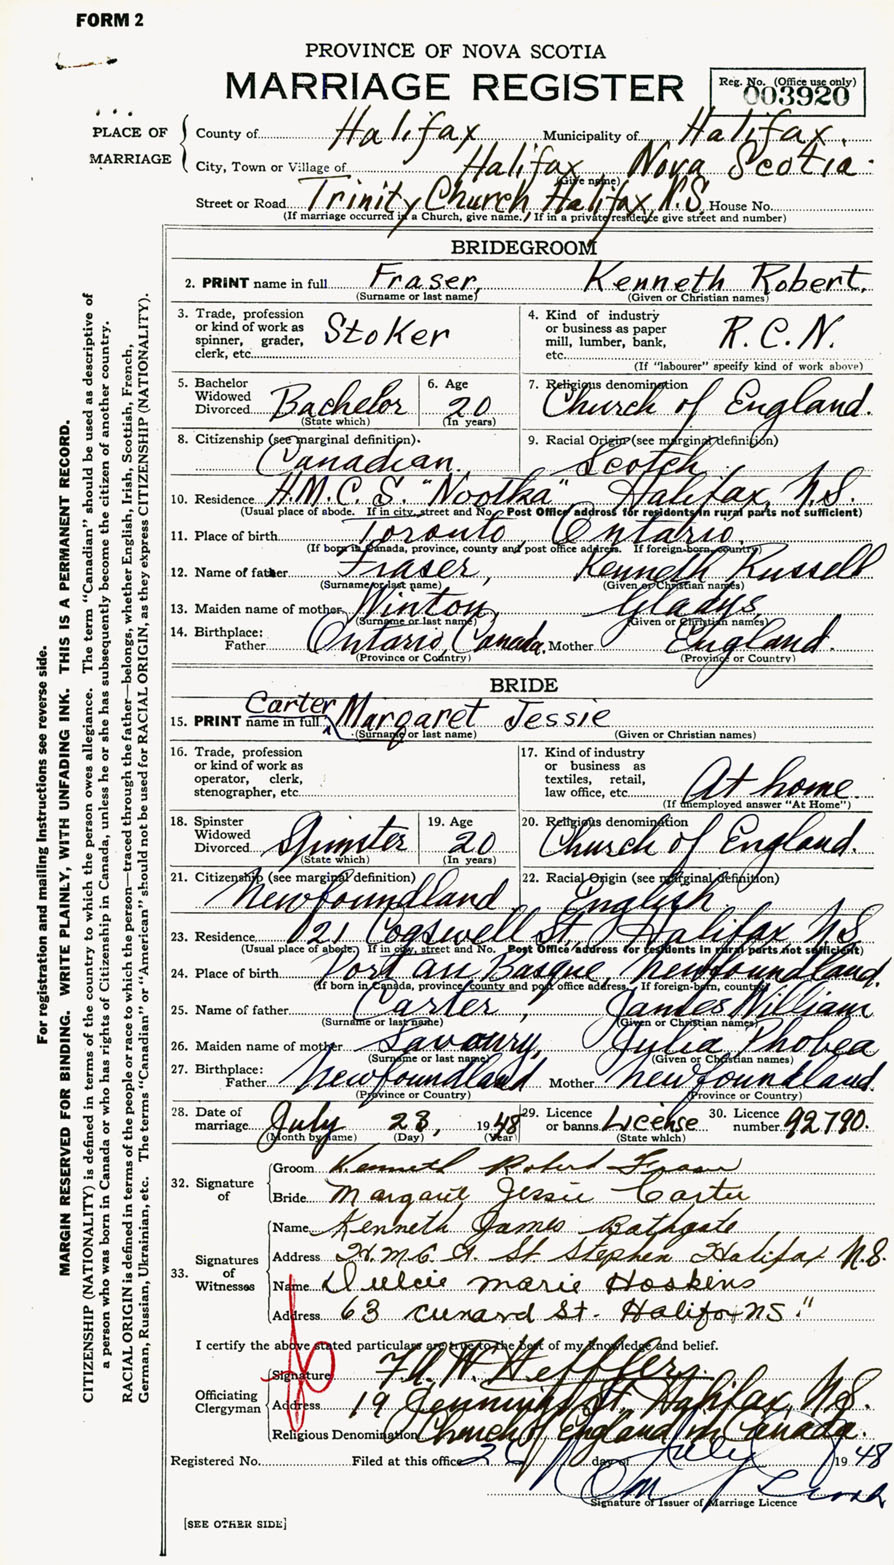 FORM 2
PROVINCE OF NOVA SCOTIA
MARRIAGE REGISTER
Reg. No. (Office use only)
003920
PLACE OF MARRIAGE
County of Halifax Municipality of Halifax.
City, Town or Village of Halifax Nova Scotia.
(Give name)
Street or Road Trinity Church Halifax N.S. House No.
(If marriage occurred in a Church, give name. If in a private residence give street and number)
BRIDEGROOM
2. PRINT name in full Fraser, Kenneth Robert.
(Surname or last name) (Given or Christian names)
3. Trade, profession or kind of work as spinner, grader, clerk, etc. Stoker
4. Kind of industry or business as paper mill, lumber, bank, etc. R.C.N.
(If "labourer" specify kind of work above)
5. Bachelor Widowed Divorced Bachelor (State which)
6. Age 20 (In years)
7. Religious denomination Church of England.
8. Citizenship (see marginal definition). Canadian
9. Racial Origin (see marginal definition) Scotch
10. Residence H.M.C.S. "Nootka" Halifax, N.S.
(Usual place of abode. If in city, street and No. Post Office address for residents in rural parts not sufficient)
11. Place of birth Toronto, Ontario.
(If born in Canada, province, county and post office address. If foreign-born, country)
12. Name of father Fraser, Kenneth Russell
(Surname or last name) (Given or Christian names)
13. Maiden name of mother Winton, Gladys,
(Surname or last name) (Given or Christian names)
14. Birthplace: Father Ontario, Canada. Mother England.
(Province or Country) (Province or Country)
BRIDE
Carter
15. PRINT name in full Margaret Jessie
(Surname or last name) (Given or Christian names)
16. Trade, profession or kind of work as operator, clerk, stenographer, etc.
17. Kind of industry or business as textiles, retail, law office, etc. At home.
(If unemployed answer "At Home")
18. Spinster Widowed Divorced Spinster (State which)
19. Age 20 (In years)
20. Religious denomination Church of England.
21. Citizenship (see marginal definition) Newfoundland
22. Racial Origin (see marginal definition) English
23. Residence 121 Cogswell St. Halifax N.S.
(Usual place of abode. If in city, street and No. Post Office address for residents in rural parts not sufficient)
24. Place of birth Port au Basque, Newfoundland.
(If born in Canada, province county and post office address. If foreign-born, country)
25. Name of father Carter, James William
(Surname or last name) (Given or Christian names)
26. Maiden name of mother Savoury, Julia Phobea
(Surname or last name) (Given or Christian names)
27. Birthplace: Father Newfoundland Mother Newfoundland.
(Province or Country) (Province or Country)
28. Date of marriage July 28, 1948 (Month by name) (Day) (Year)
29. Licence or banns License (State which)
30. Licence number 92790.
32. Signature of
Groom Kenneth Robert Fraser
Bride Margaret Jessie Carter
33. Signatures of Witnesses
Name Kenneth James Bathgate
Address H.M.C.S. St Stephen Halifax N.S.
Name Dulcie Marie Hoskins
Address 63 Cunard St. Halifax NS."
I certify the above stated particulars are true to the best of my knowledge and belief.
Officiating Clergyman
Signature Heffler
Address 19 St. Halifax, N.S.
Religious Denomination Church of England in Canada.
Registered No. Filed at this office day of July 1948
Signature of Issuer of Marriage Licence
[SEE OTHER SIDE]
For registration and mailing instructions see reverse side.
MARGIN RESERVED FOR BINDING. WRITE PLAINLY, WITH UNFADING INK. THIS IS A PERMANENT RECORD.
CITIZENSHIP (NATIONALITY) is defined in terms of the country to which the person owes allegiance. The term "Canadian" should be used as descriptive of
a person who was born in Canada or who has rights of Citizenship in Canada, unless he or she has subsequently become the citizen of another country.
RACIAL ORIGIN is defined in terms of the people or race to which the person—traced through the father—belongs, whether English, Irish, Scottish, French,
German, Russian, Ukrainian, etc. The terms "Canadian" or "American" should not be used for RACIAL ORIGIN, as they express CITIZENSHIP (NATIONALITY).